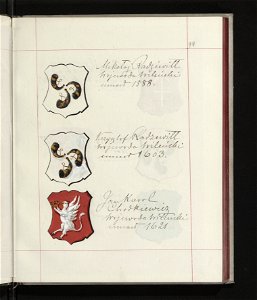 Mikołaj Radziwiłł
Wojewoda Wileński
umarł 1588.
Krzysztof Radziwiłł
Wojewoda Wileński
umarł 1603.
Jan Karol
Chodkiewicz
Wojewoda Wileński
umarł 1621